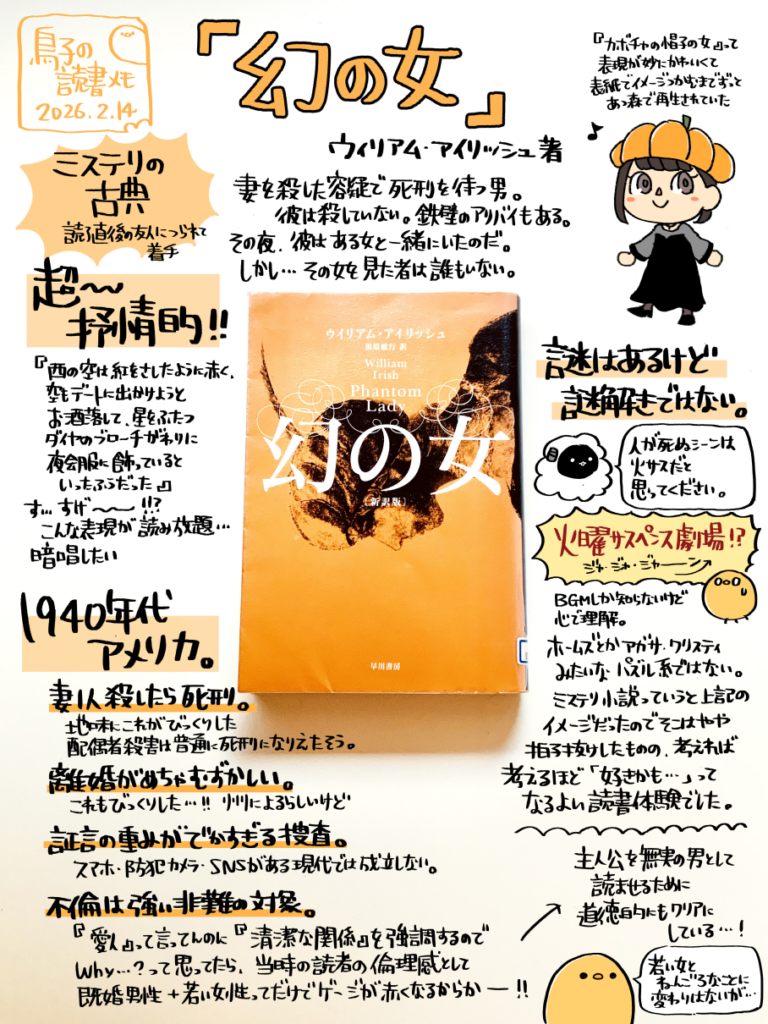 鳥子の
読書メモ
2026.2.14
『幻の女』
ウィリアム・アイリッシュ著
『カボチャの帽子の女』って
表現が妙にかわいくて
表紙でイメージつかむまでずっと
あつ森で再生されていた
ミステリの
古典
読了直後の友人につられて
着手
妻を殺した容疑で死刑を待つ男。
彼は殺していない。鉄壁のアリバイもある。
その夜、彼はある女と一緒にいたのだ。
しかし…その女を見た者は誰もいない。
超〜
抒情的!!
『西の空は紅をさしたように赤く、
空もデートに出かけようと
お洒落して、星をふたつ
ダイヤのブローチがわりに
夜会服に飾っていると
いったふうだった』
す…すげ〜〜!!?
こんな表現が読み放題…
暗唱したい
ウイリアム・アイリッシュ
黒原敏行 訳
William
Irish
Phantom
Lady
幻の女
[新訳版]
早川書房
1940年代
アメリカ。
妻1人殺したら死刑。
地味にこれがびっくりした
配偶者殺害は普通に死刑になりえたそう。
離婚がめちゃむずかしい。
これもびっくりした…!! 州によるらしいけど
証言の重みがでかすぎる捜査。
スマホ・防犯カメラ・SNSがある現代では成立しない。
不倫は強い非難の対象。
『愛人』って言ってんのに『清潔な関係』を強調するので
Why…?って思ってたら、当時の読者の倫理感として
既婚男性+若い女性ってだけでゲージが赤くなるからかー!!
謎はあるけど
謎解きではない。
人が死ぬシーンは
火サスだと
思ってください。
火曜サスペンス劇場!?
ジャ・ジャ・ジャーーン
BGMしか知らないけど
心で理解。
ホームズとかアガサ・クリスティ
みたいなパズル系ではない。
ミステリ小説っていうと上記の
イメージだったのでそこはやや
拍子抜けしたものの、考えれば
考えるほど「好きかも…」って
なるよい読書体験でした。
主人公を無実の男として
読ませるために
道徳的にもクリアに
している…!
若い女と
ねんごろなことに
変わりはないが…